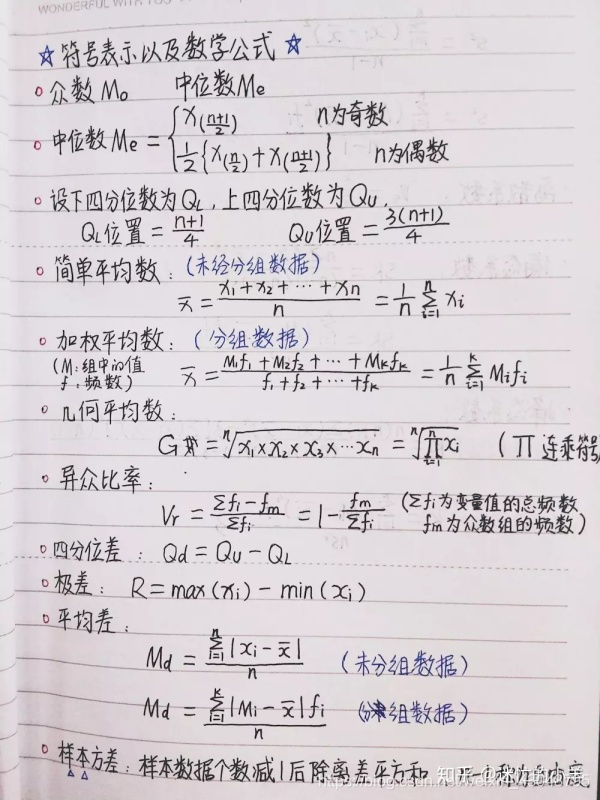 WONDERFUL WITH YOU
☆ 符号表示以及数学公式 ☆
众数 Mo 中位数 Me
中位数 Me = { x_((n+1)/2) n为奇数
1/2 {x_(n/2) + x_((n+1)/2)} n为偶数
设下四分位数为 QL, 上四分位数为 QU,
QL位置 = (n+1)/4 QU位置 = 3(n+1)/4
简单平均数: (未经分组数据)
x̄ = (x1 + x2 + ⋯ + xn)/n = 1/n ∑_{i=1}^{n} xi
加权平均数: (分组数据)
(M:组中的值
f:频数) x̄ = (M1f1 + M2f2 + ⋯ + MKfK)/(f1 + f2 + ⋯ + fK) = 1/n ∑_{i=1}^{K} Mifi
几何平均数:
G = ⁿ√(x1×x2×x3×⋯xn) = ⁿ√(∏_{i=1}^{n} xi) (∏ 连乘符号
异众比率:
Vr = (∑fi − fm)/∑fi = 1 − fm/∑fi (∑fi为变量值的总频数
fm为众数组的频数)
四分位差: Qd = QU − QL
极差: R = max(xi) − min(xi)
平均差:
Md = ∑_{i=1}^{n} |xi − x̄| / n (未分组数据)
Md = ∑_{i=1}^{K} |Mi − x̄| fi / n (分组数据)
样本方差: 样本数据个数减1后除离差平方和